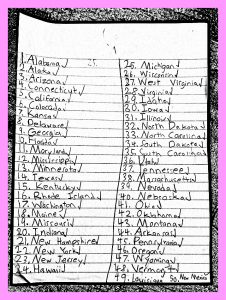 1. Alabama
2. Alaska
3. Arizona
4. Connecticut
5. California
6. Colorado
7. Kansas
8. Delaware
9. Georgia
10. Florida
11. Maryland
12. Mississippi
13. Minnesota
14. Texas
15. Kentucky
16. Rhode Island
17. Washington
18. Maine
19. Missouri
20. Indiana
21. New Hampshire
22. New York
23. New Jersey
24. Hawaii
25.
25. Michigan
26. Wisconsin
27. West Virginia
28. Virginia
29. Idaho
30. Iowa
31. Illinois
32. North Dakota
33. North Carolina
34. South Dakota
35. South Carolina
36. Utah
37. Tennessee
38. Massachusetts
39. Nevada
40. Nebraska
41. Ohio
42. Oklahoma
43. Montana
44. Arkansas
45. Pennsylvania
46. Oregon
47. Wyoming
48. Vermont
49. Louisiana 50. New Mexico